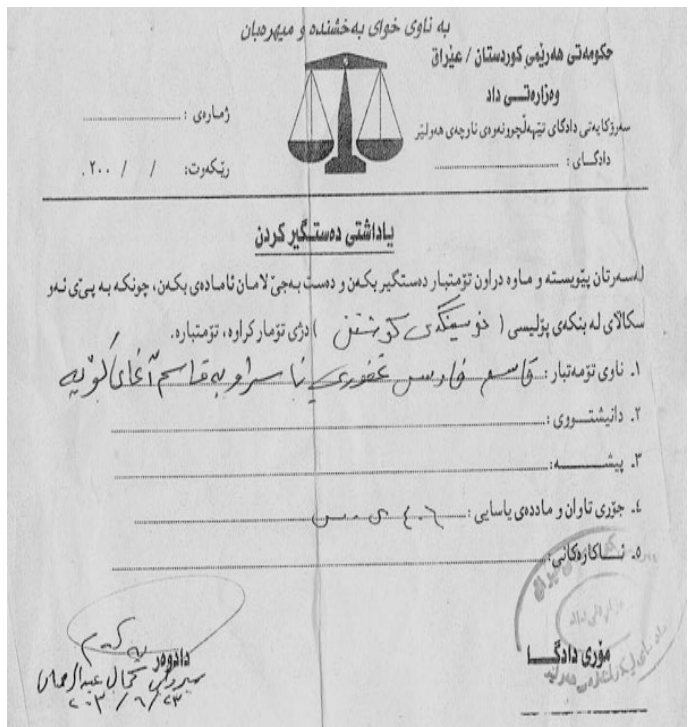 به ناوی خوای بەخشنده و میهرەبان
حکومەتی هەرێمی کوردستان / عێراق
وەزارەتـــی داد
سەرۆکایەتی دادگای تێهەڵچوونەوەی ناوچەی هەولێر
دادگـــای :
ژمارەی :
ڕێکەوت: / / ٢٠٠.
یاداشتی دەستـگیر کردن
لەسەرتان پێویستە و ماوە دراون تۆمتبار دەستگیر بکەن و دەست بەجێ لامان ئامادەی بکەن، چونکە بە پـێی ئەو
سکاڵای لە بنکەی پۆلیسی ( نوسینگەی کوشتن ) دژی تۆمار کراوە، تۆمتبارە.
١. ناوی تۆمەتبار : قاسم فارس غفوری ناسراو بە قاسم آغای کۆیە
٢. دانیشتـــووری :
٣. پیشـــــــه :
٤. جۆری تاوان و ماددەی یاسایی : ٤٠٦
٥. ئـــاکارەکانی :
دادوەر
کمال عبدالرحمان
٢٠٠٣/٦/٢٣
مۆری دادگـــا